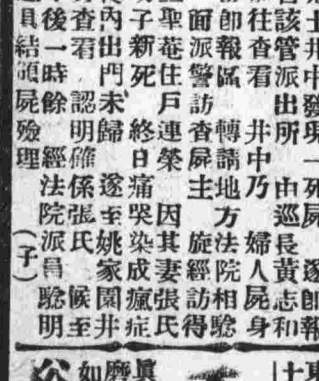 土井中發現一死屍 遂即報
告該管派出所 由巡長黃志和
前往查看 井中乃一婦人屍身
當即報區 轉請地方法院相驗
一面派警訪查屍主 旋經訪得
聖菴住戶連榮 因其妻張氏
子新死 終日痛哭染成瘋症
內出門未歸 遂至姚家園井
查看 認明確係張氏 候至
後一時餘 經法院派員驗明
具結領屍殮理 (子)
東土
眞
磨
如